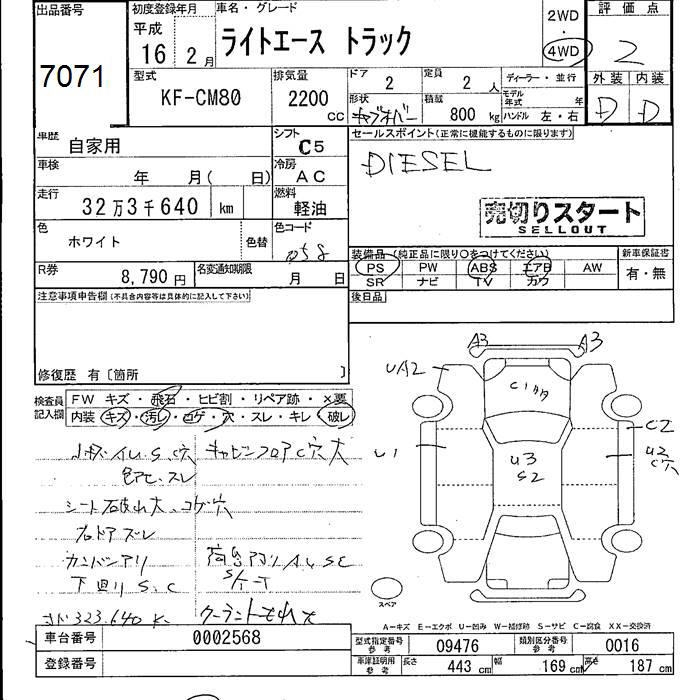 出品番号
7071
初度登録年月
平成
16年 2月
車名・グレード
ライトエース トラック
2WD
・
4WD
評価点
2
外装 内装
D D
型式
KF-CM80
排気量
2200 CC
ドア
2
定員
2 人
ディーラー・並行
形状
キャブオーバー
積載
800 kg
モデル年式 年
ハンドル 左・右
車歴
自家用
シフト
C5
セールスポイント(正常に機能するものに限ります)
DIESEL
車検
年 月( 日)
冷房
AC
走行
32万3千640 km
燃料
軽油
売切りスタート
SELLOUT
色
ホワイト
色替
色コード
058
装備品 (純正品に限り○をつけてください)
新車保証書
PS PW ABS エアB AW
有・無
SR ナビ TV カワ
R券
8,790円
名変通知期限
月 日
後日品
注意事項申告欄(不具合内容等は具体的に記入して下さい)
修復歴 有〔箇所 〕
検査員記入欄
FW キズ・飛石・ヒビ割・リペア跡・×要
内装 キズ・汚レ・コゲ・穴・スレ・キレ・破レ
キャビンフロアC穴大
シート破れ大、コゲ穴
右ドアズレ
カンバンアリ
下回りS.C
323.640 K
クーラントもれ大
A3 A3
UA2
C1
U1
U3
S2
C2
U2
C穴
スペア
A-キズ E-エクボ U-凹み W-補修跡 S-サビ C-腐食 XX-交換済
車台番号
0002568
型式指定番号
参考
09476
類別区分番号
参考
0016
登録番号
車庫証明用
参考
長さ
443 cm
幅
169 cm
高さ
187 cm